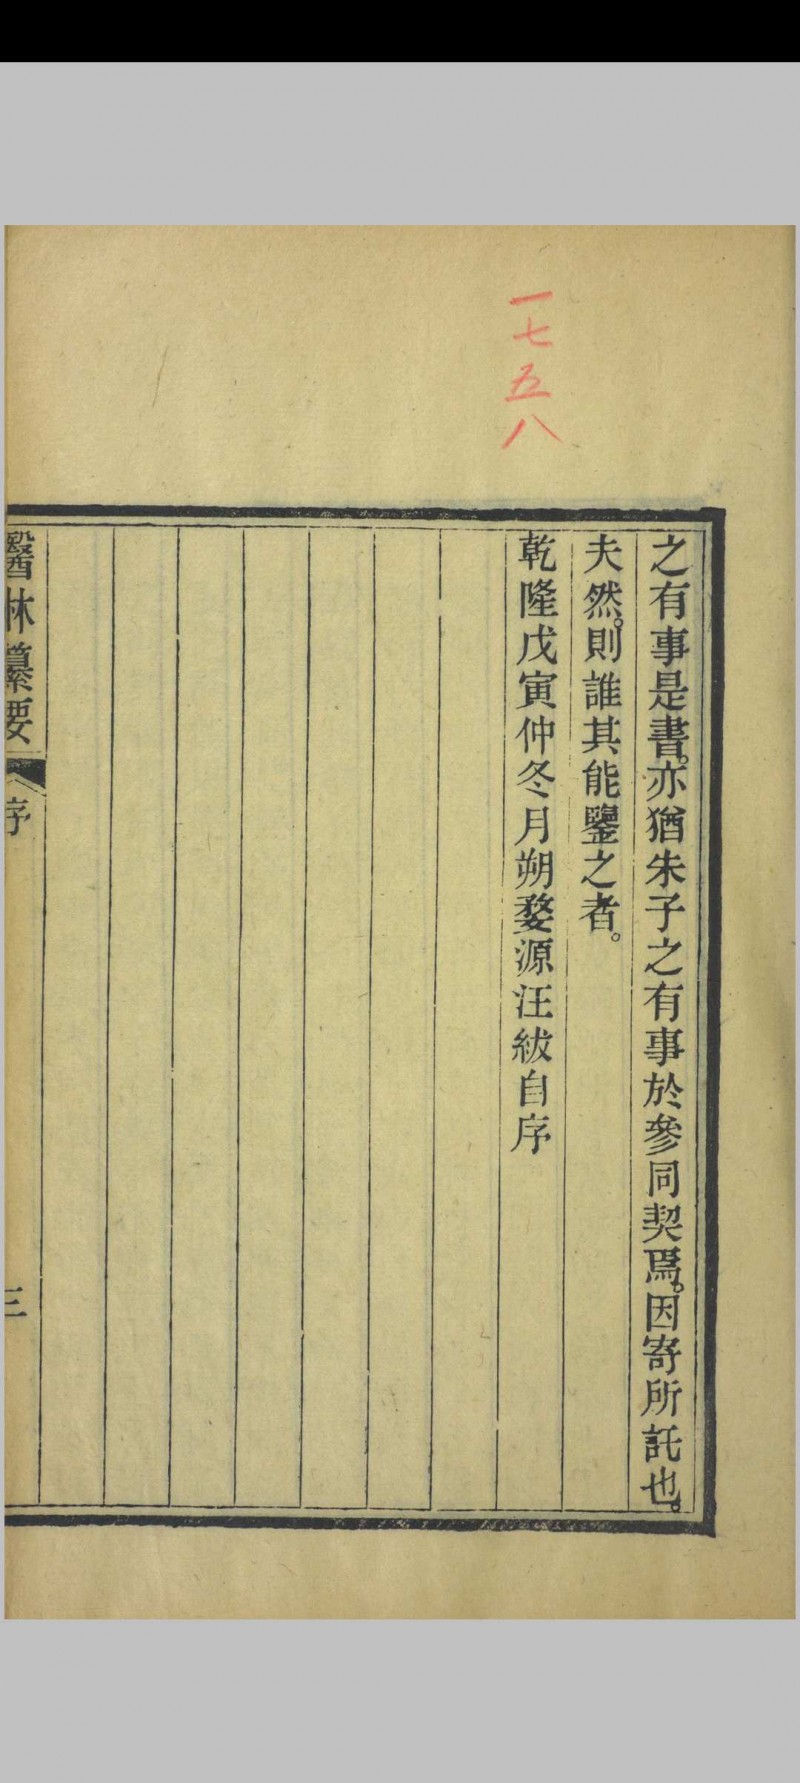 一七五八
之有事是書。亦猶朱子之有事於參同契焉。因寄所託也。
夫然。則誰其能鑒之者。
乾隆戊寅仲冬月朔婺源汪紱自序
醫林纂要
序
三